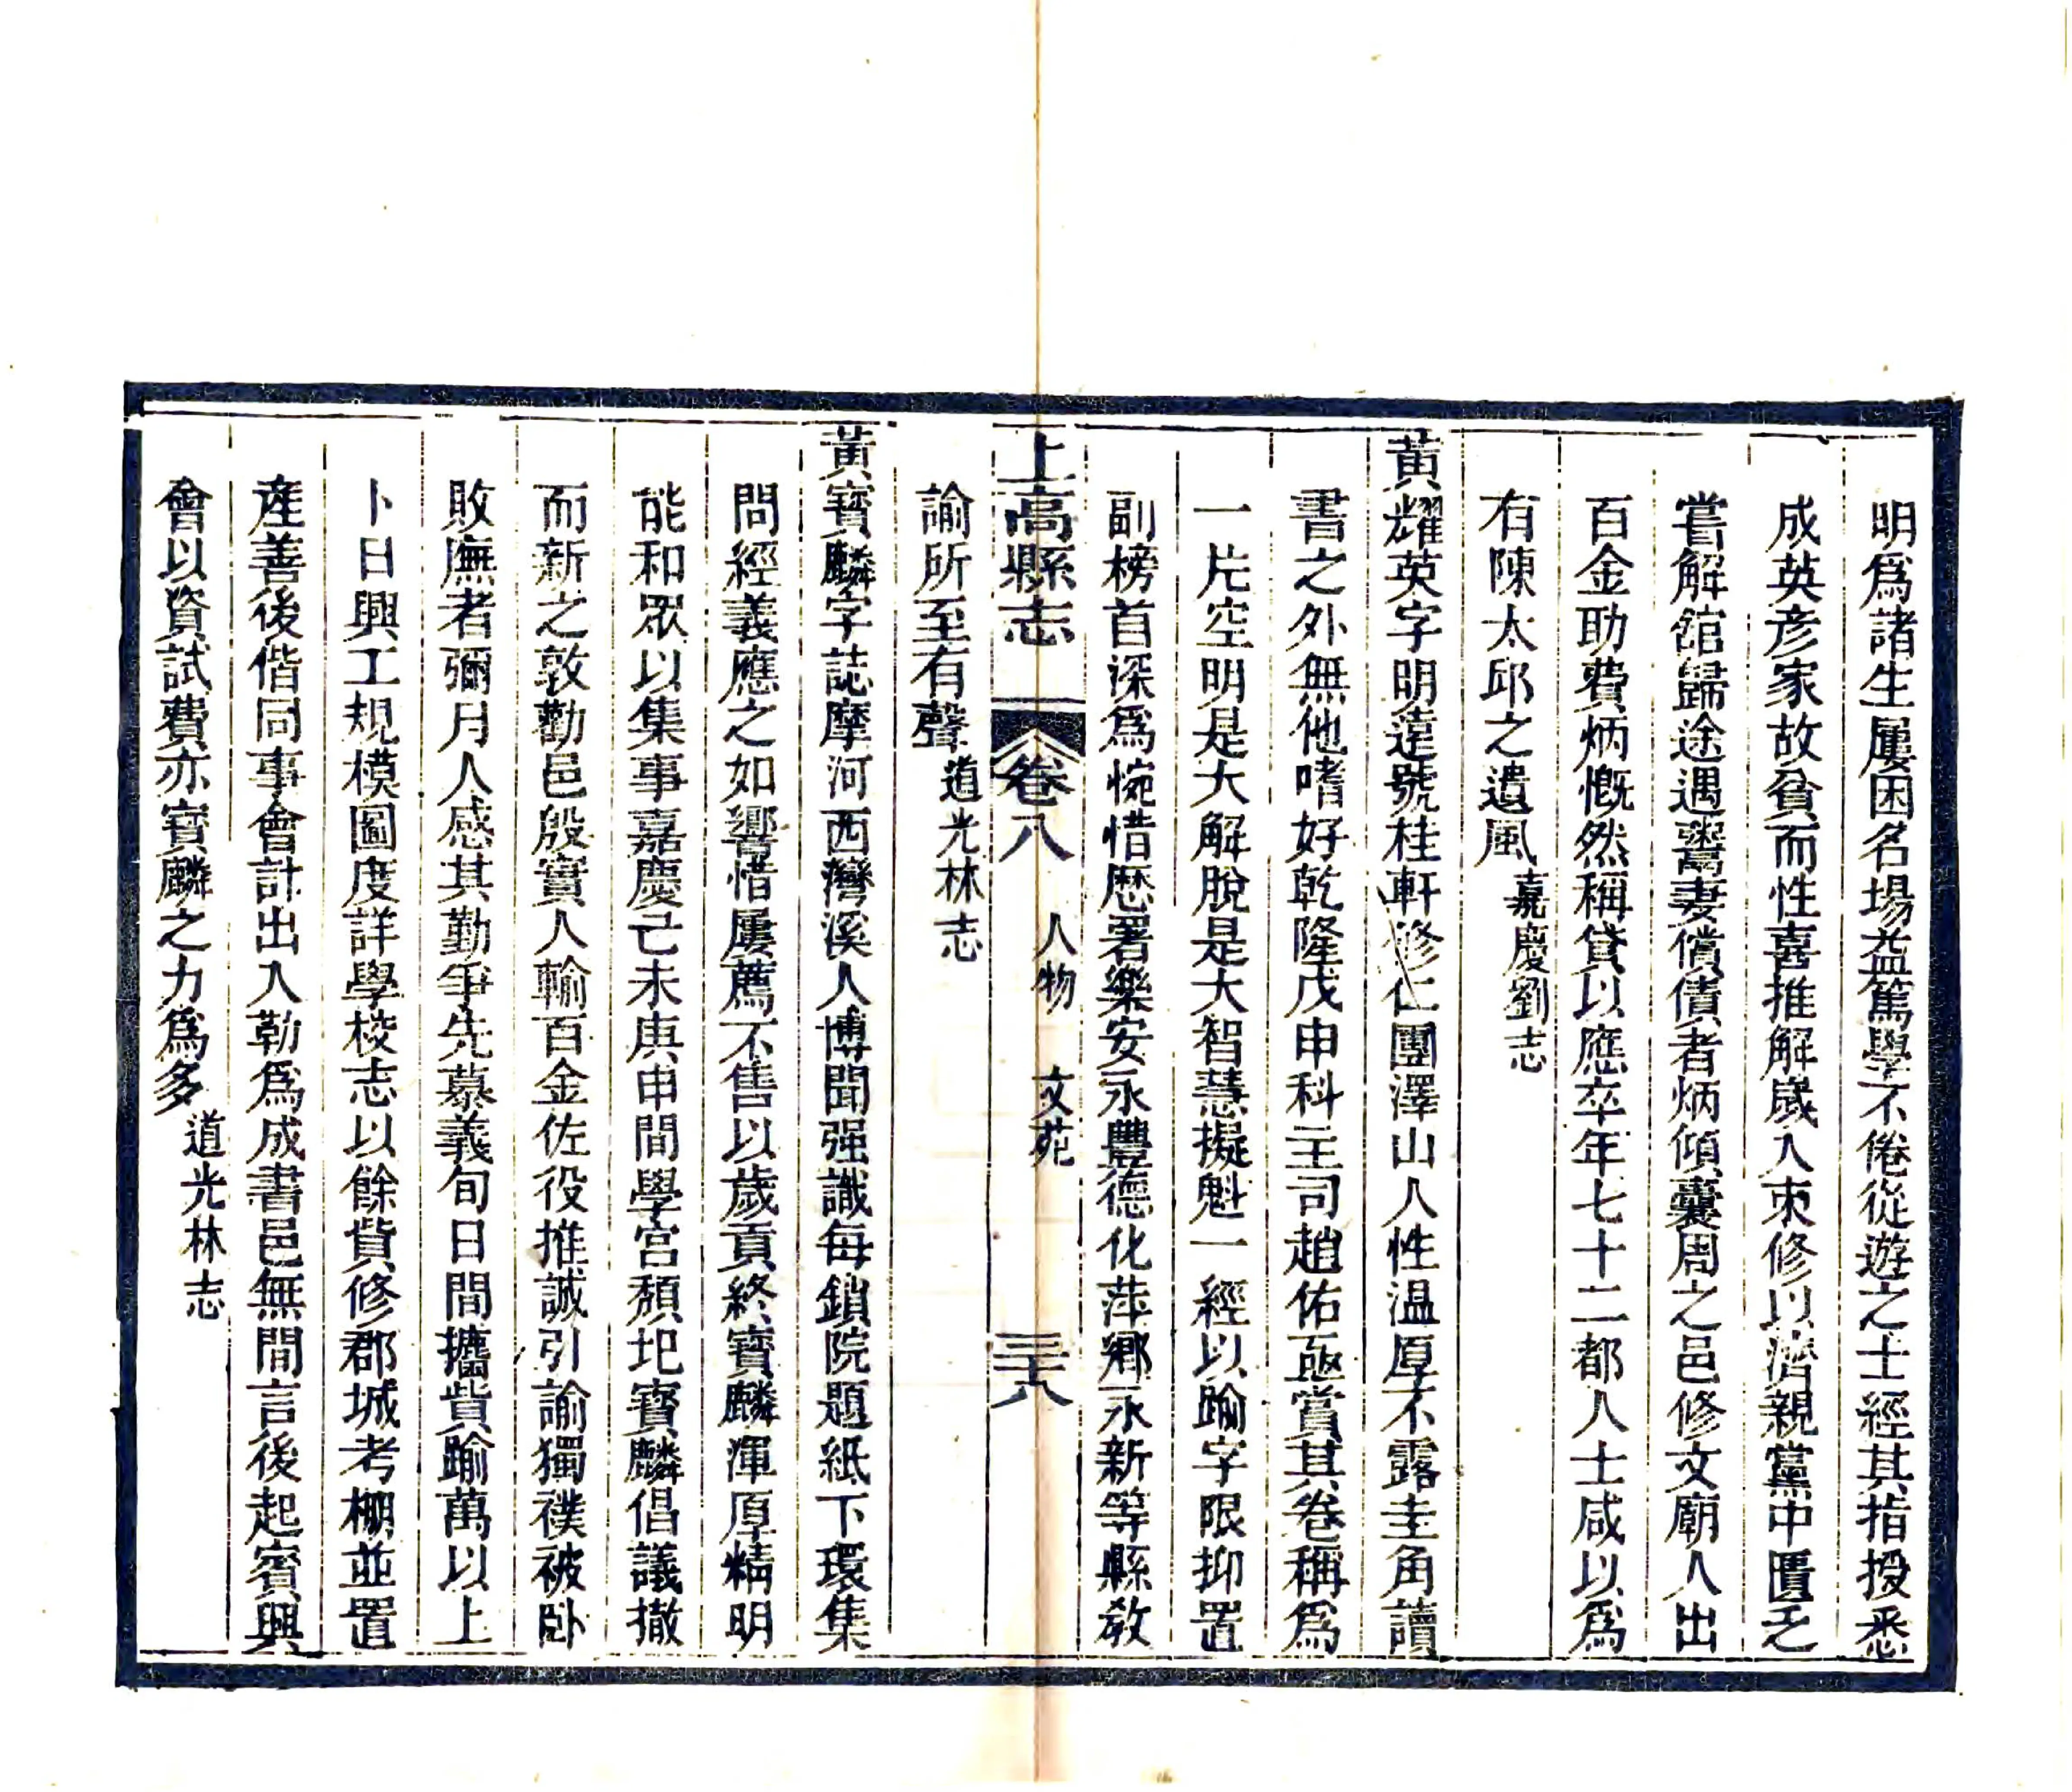 明爲諸生屢困名場益篤學不倦從遊之士經其指授悉
成英彦家故貧而性喜推解歲入朿修以濟親黨中匱乏
嘗解館歸途遇鬻妻償債者炳傾囊周之邑修文廟人出
百金助費炳慨然稱貸以應卒年七十二都人士咸以爲
有陳太邱之遺風嘉慶劉志
黃耀英字明遠號桂軒修仁團澤山人性温厚不露圭角讀
書之外無他嗜好乾隆戊申科主司趙佑亟賞其卷稱爲
一片空明是大解脫是大智慧擬魁一經以踰字限抑置
副榜首深爲惋惜歴署樂安永豐德化萍鄉永新等縣敎
諭所至有聲道光林志
上高縣志 卷八 人物 文苑 三十八
黃寶麟字誌摩河西灣溪人博聞强識每鎖院題紙下環集
問經義應之如響惜屢薦不售以歲貢終寶麟渾厚精明
能和眾以集事嘉慶己未庚申間學宮頹圯寶麟倡議撤
而新之敦勸邑殷實人輸百金佐役推誠引諭獨襆被卧
敗廡者彌月人感其勤爭先慕義旬日間攜貲踰萬以上
卜日興工規模圖度詳學校志以餘貲修郡城考棚並置
産善後偕同事會計出入勒爲成書邑無間言後起賓興
會以資試費亦寶麟之力爲多道光林志